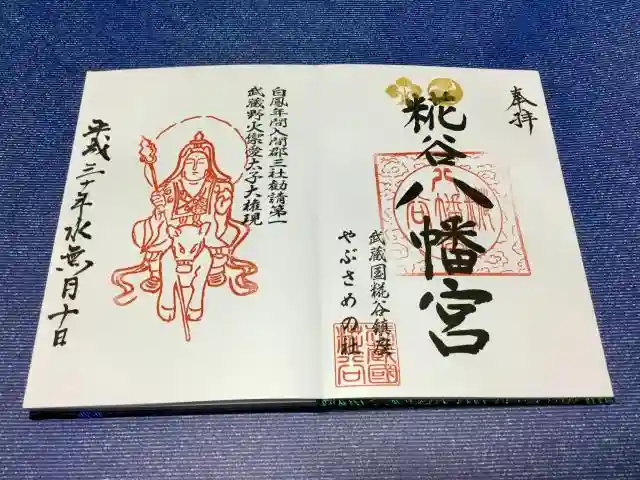 奉拝
糀谷八幡宮
武蔵国糀谷鎮座
やぶさめの杜
白鳳年間入間郡三社勧請第一
武蔵野火禦愛太子大権現
平成三十年水無月十日